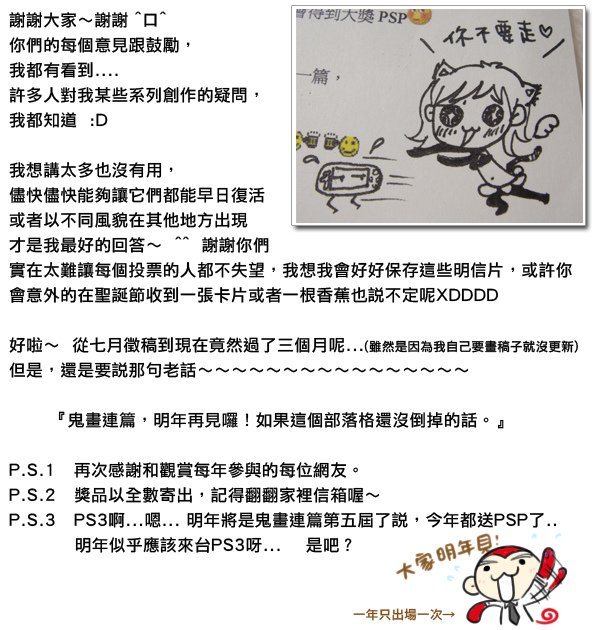 謝謝大家～謝謝 ^口^
你們的每個意見跟鼓勵，
我都有看到....
許多人對我某些系列創作的疑問，
我都知道 :D
會得到大獎 PSP
一篇，
你不要走♡
我想講太多也沒有用，
儘快儘快能夠讓它們都能早日復活
或者以不同風貌在其他地方出現
才是我最好的回答～ ^^ 謝謝你們
實在太難讓每個投票的人都不失望，我想我會好好保存這些明信片，或許你
會意外的在聖誕節收到一張卡片或者一根香蕉也說不定呢XDDDD
好啦～ 從七月徵稿到現在竟然過了三個月呢...(雖然是因為我自己要畫稿子就沒更新)
但是，還是要說那句老話～～～～～～～～～～～～～～～～
『鬼畫連篇，明年再見囉！如果這個部落格還沒倒掉的話。』
P.S.1 再次感謝和觀賞每年參與的每位網友。
P.S.2 獎品以全數寄出，記得翻翻家裡信箱喔～
P.S.3 PS3啊...嗯... 明年將是鬼畫連篇第五屆了說，今年都送PSP了..
明年似乎應該來台PS3呀... 是吧？
大家明年見!
一年只出場一次→